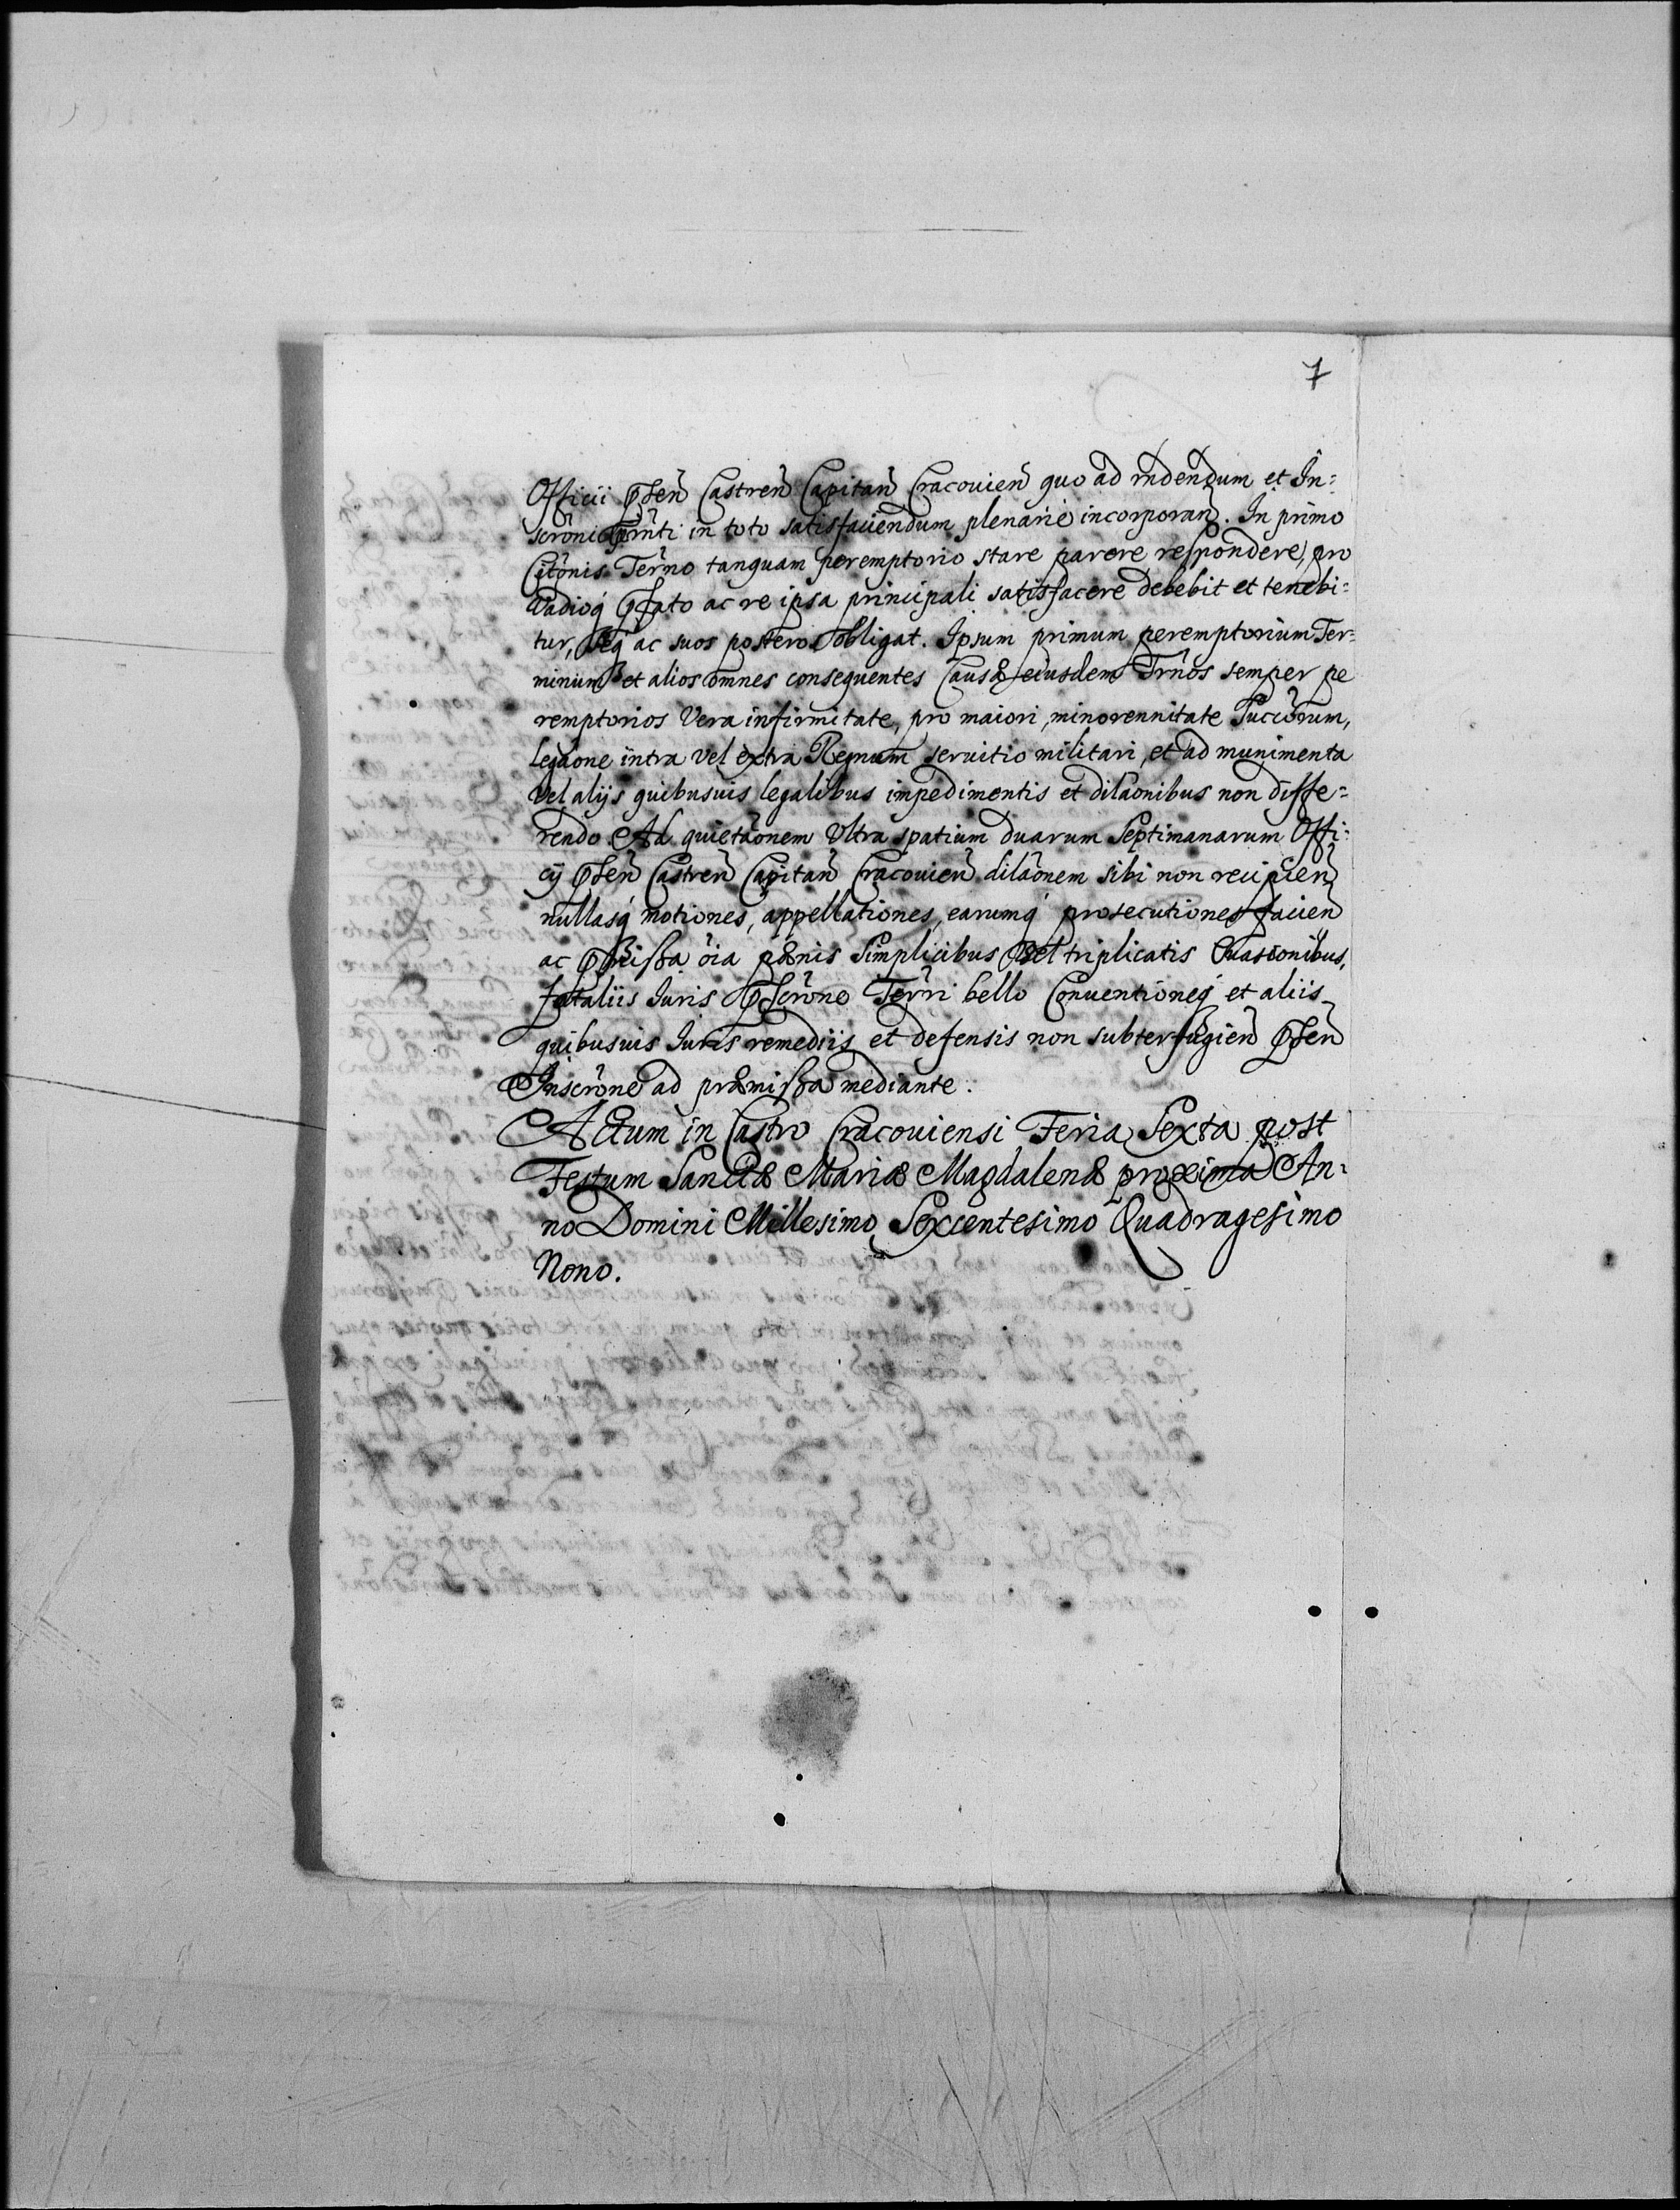 7
Officii p̄sen̄ Castren̄ Capitan̄ Cracouien̄ quo ad rn̄dendum et In=
scrōni p̄nti in toto satisfaciendum plenarie incorporan̄. In primo
Citōnis Terno tanquam peremptorio stare parere respondere, pro
Vadioq̃ p̄fato ac re ipsa principali satisfacere debebit et tenebi=
tur, seq̃ ac suos posteros obligat. Ipsum primum peremptorium Ter=
minum et alios omnes consequentes Causæ eiusdem Trnos semper pe
remptorios Vera infirmitate, pro maiori, minorennitate Succorum,
legāone intra vel extra Regnum seruitio militari, et ad munimenta
Vel aliys quibusuis legalibus impedimentis et dilāonibus non diffe=
rendo Ad quietāonem Vltra spatium duarum Septimanarum Offi=
cy p̄sen̄ Castren̄ Capitan̄ Cracouien̄ dilāonem sibi non recipien̄
nullasq̃ motiones, appellationes, earumq̃ prosecutiones facien̄
ac p̄missa o͞ia pænis Simplicibus Vel triplicatis Euasionibus,
fataliis Iuris p̄scrōne Terri bello Conuentioneq̃ et aliis
quibusuis Iuris remediis et defensis non subterfugien̄ p̄sen̄
Inscrōne ad præmissa mediante.
Actum in Castro Cracouiensi Feria Sexta post
Festum Sanctæ Mariæ Magdalenæ proxima An=
no Domini Millesimo Sexcentesimo Quadragesimo
Nono.